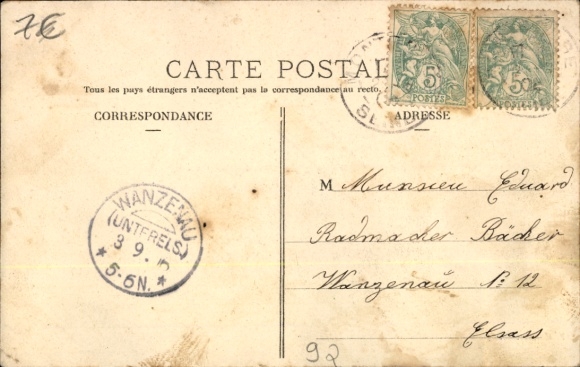 7€
CARTE POSTAL
Tous les pays étrangers n'acceptent pas la correspondance au recto,
CORRESPONDANCE
ADRESSE
5c
POSTES
5c
POSTES
SEINE
WANZENAU
(UNTERELS.)
3 9.
* 5-6N. *
M Munsieu Eduard
Radmacher Bäcker
Wanzenau No 12
Elsass
92